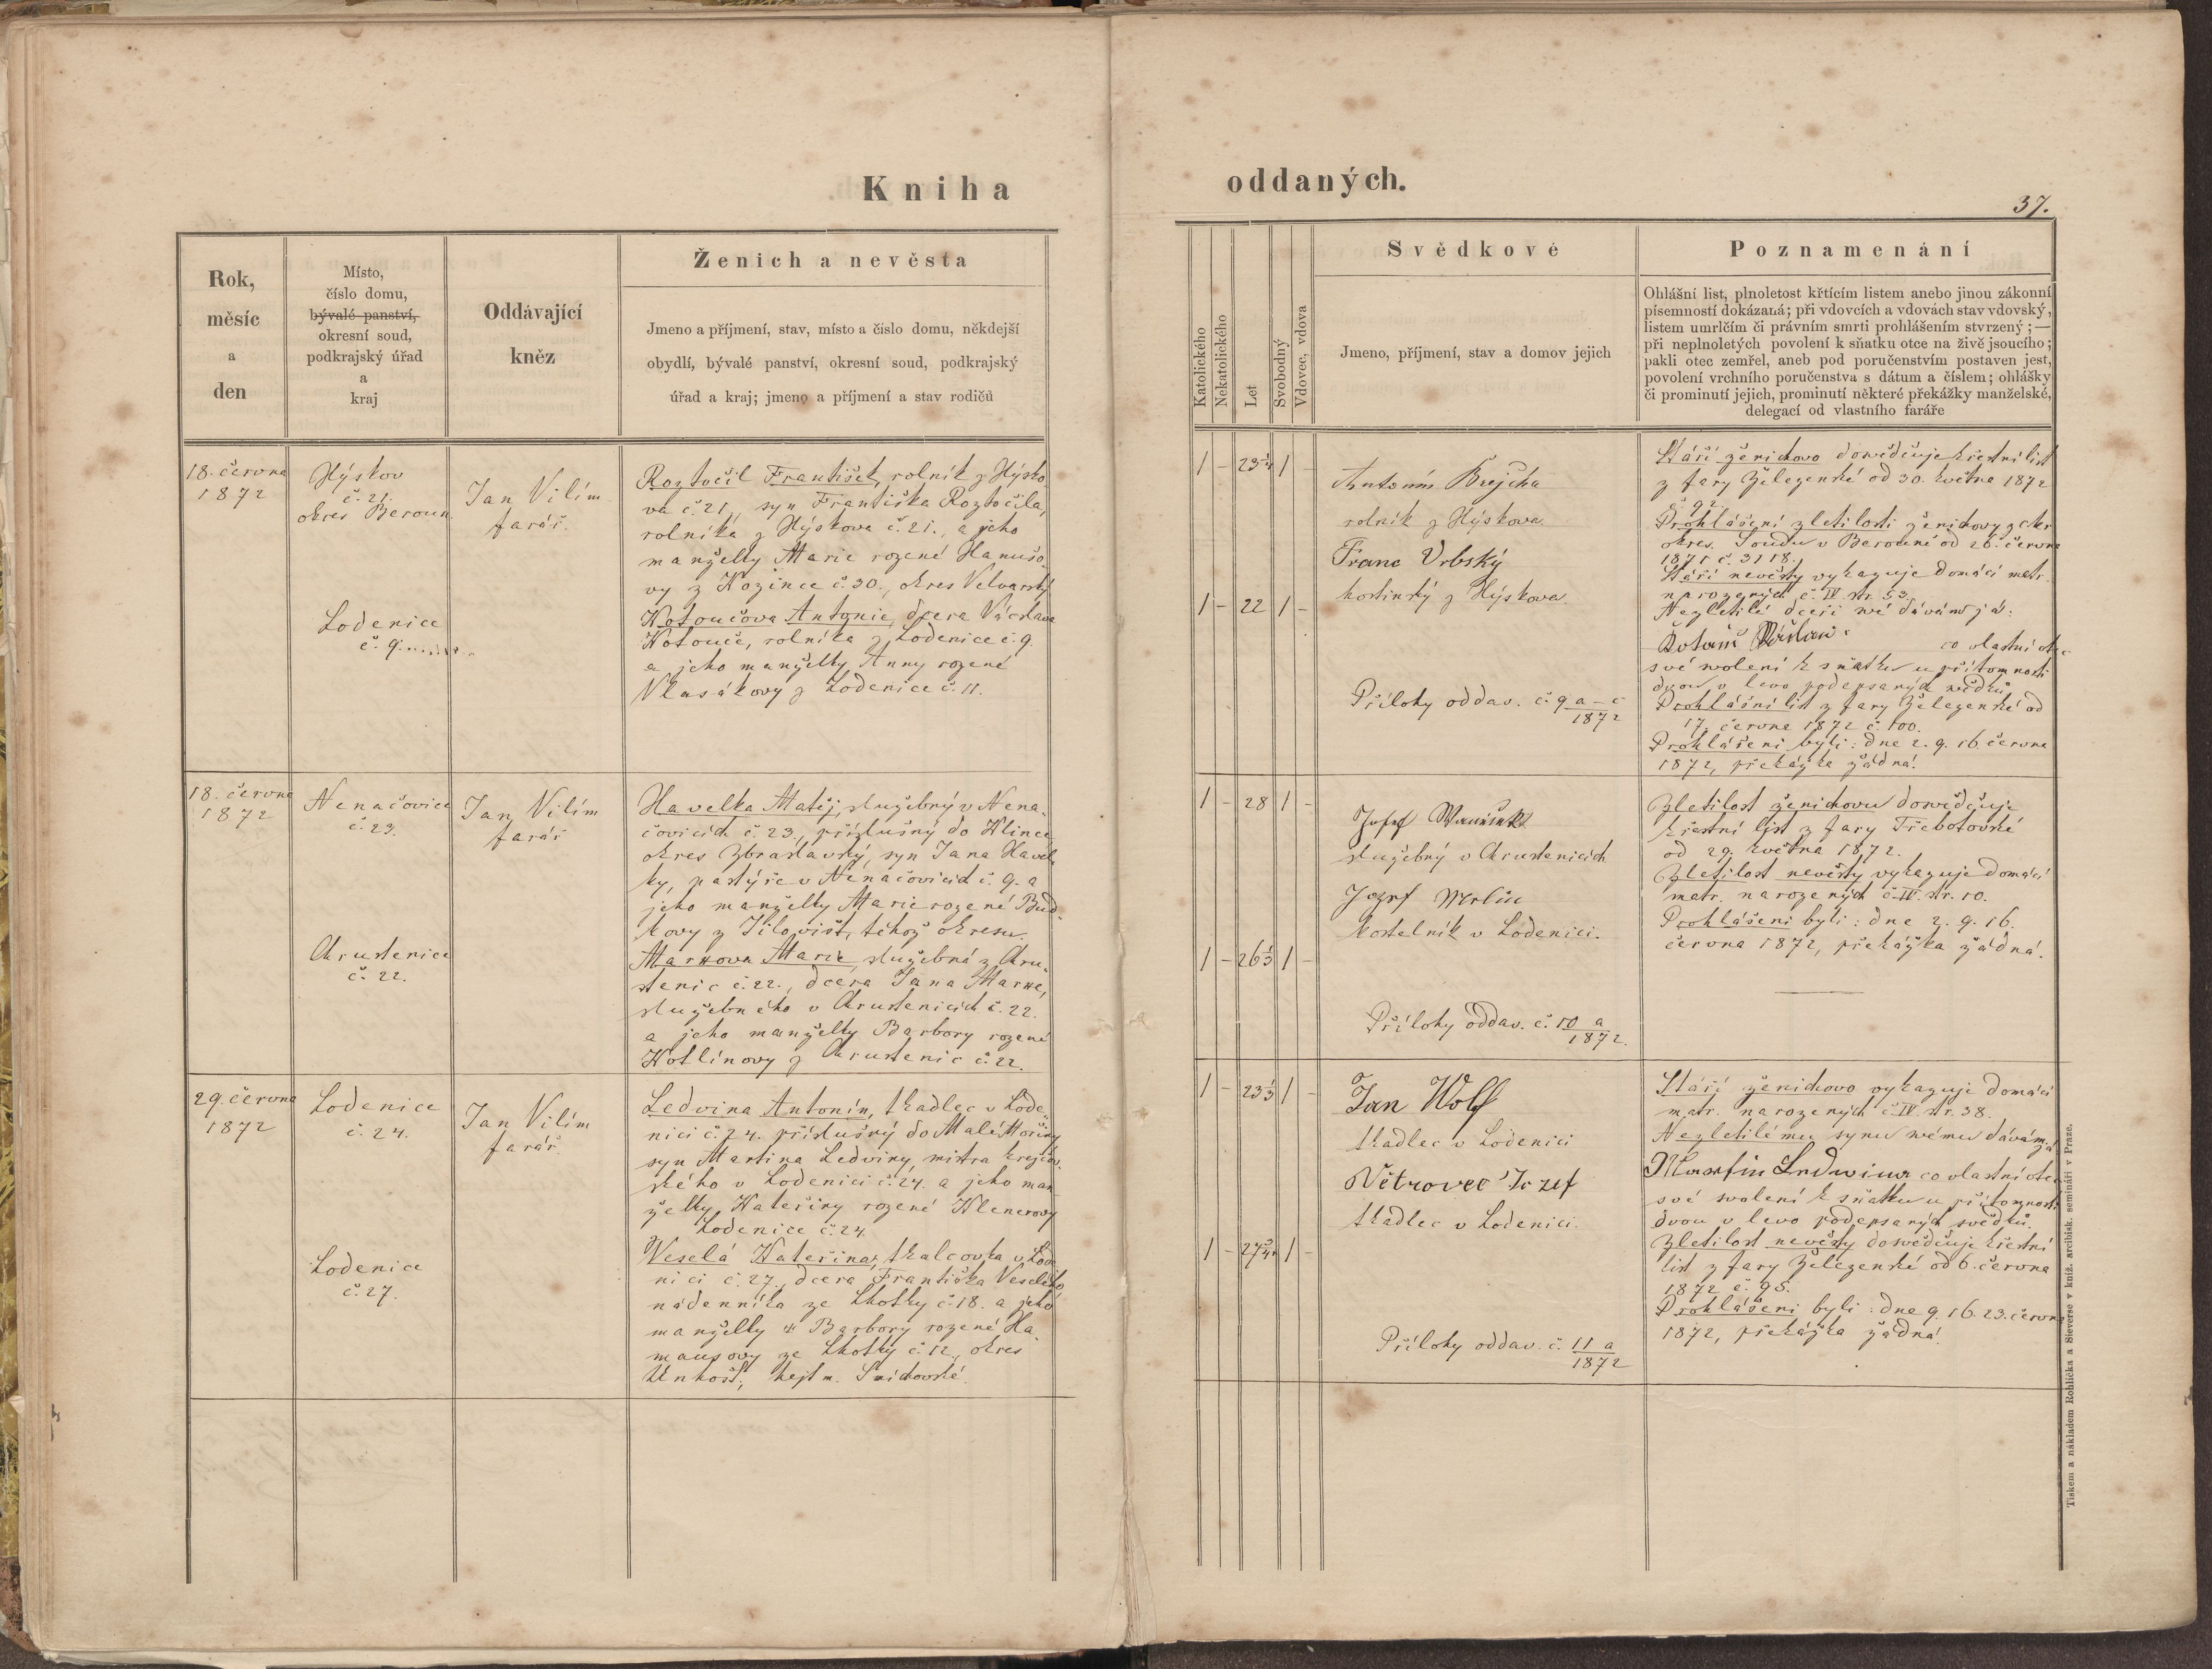 Kniha
oddaných.
37.
Rok,
měsíc
a
den
Místo,
číslo domu,
bývalé panství,
okresní soud,
podkrajský úřad
a
kraj
Oddávající
kněz
Ženich a nevěsta
Jmeno a příjmení, stav, místo a číslo domu, někdejší
obydlí, bývalé panství, okresní soud, podkrajský
úřad a kraj; jmeno a příjmení a stav rodičů
Katolického
Nekatolického
Let
Svobodný
Vdovec, vdova
Svědkové
Jmeno, příjmení, stav a domov jejich
Poznamenání
Ohlášní list, plnoletost křtícím listem anebo jinou zákonní
písemností dokázaná; při vdovcích a vdovách stav vdovský,
listem umrlčím či právním smrti prohlášením stvrzený; —
při neplnoletých povolení k sňatku otce na živě jsoucího;
pakli otec zemřel, aneb pod poručenstvím postaven jest,
povolení vrchního poručenstva s dátum a číslem; ohlášky
či prominutí jejich, prominutí některé překážky manželské,
delegací od vlastního faráře
18. června
1872
Hýskov
č. 21.
okres Beroun.
Jan Vilím
farář.
Roztočil František, rolník z Hýsko
va č. 21., syn Františka Roztočila,
rolníka z Hýskova č. 21., a jeho
manželky Marie rozené Hanušo
vy z Kozince č. 30., okres Velvarský
Lodenice
č. 9.
Kotoučova Antonie, dcera Václava
Kotouče, rolníka z Lodenice č. 9.
a jeho manželky Anny rozené
Vlasákovy z Lodenice č. 11.
1 - 23 1/4 1 -
1 - 22 1 -
Antonín Brejcha
rolník z Hýskova.
Franc Vrbský
hostinský z Hýskova.
Přílohy oddav. č. 9 a – c
1872
Stáří ženichovo dosvědčuje křestní list
z fary Železenské od 30. května 1872
č. 92.
Prohlášení zletilosti ženichovy z ckr
okres. Soudu v Berouně od 26. června
1871 č. 3118.
Stáří nevěsty vykazuje domácí matr.
narozených č. IV. str. 53.
Nezletilé dceři své dávám já:
co vlastní otec
své svolení k sňatku u přítomnosti
dvou v levo podepsaných svědků.
Prohlášní list z fary Železenské od
17. června 1872 č. 100.
Prohlášeni byli: dne 2. 9. 16. června
1872, překážka žádná.
18. června
1872
Nenačovice
č. 23.
Jan Vilím
farář
Havelka Matěj, služebný v Nena-
čovicích č. 23., příslušný do Klince
okres Zbraslavský, syn Jana Havel-
ky, pastýře v Nenačovicích č. 9. a
jeho manželky Marie rozené Bud-
kovy z Jílovišt, téhož okresu.
Chrustenice
č. 22.
Marxova Marie, služebná z Chru-
stenic č. 22., dcera Jana Marxe,
služebného v Chrustenicích č. 22.
a jeho manželky Barbory rozené
Kotlínovy z Chrustenic č. 22.
1 - 28 1 -
1 - 26 1/3 1 -
Josef
služebný v Chrustenicích
Jozef Merlin
kostelník v Lodenici.
Přílohy oddav. č. 10 a
1872.
Zletilost ženichovu dosvědčuje
křestní list z fary Třebotovské
od 29. května 1872.
Zletilost nevěsty vykazuje domácí
matr. narozených č. IV. str. 10.
Prohlášeni byli: dne 2. 9. 16.
června 1872, překážka žádná.
29. června
1872
Lodenice
č. 24.
Jan Vilím
farář
Ledvina Antonín, tkadlec v Lode-
nici č. 24. příslušný do Malé Mořiny
syn Martina Ledviny, mistra krejčov-
ského v Lodenici č. 24. a jeho man-
želky Kateřiny rozené Klenerovy
Lodenice č. 24.
Lodenice
č. 27.
Veselá Kateřina, tkalcovka v Lode
nici č. 27., dcera Františka Veselého,
nádenníka ze Lhotky č. 18. a jeho
manželky Barbory rozené Ha-
mausovy ze Lhotky č. 12., okres
Unhošt, hejtm. Smíchovské.
1 - 23 1/3 1 -
1 - 27 3/4 1 -
Jan Wolf
tkadlec v Lodenici
Větrovec Jozef
tkadlec v Lodenici.
Přílohy oddav. č. 11 a
1872
Stáří ženichovo vykazuje domácí
matr. narozených č. IV. str. 38.
Nezletilému synu svému dávám já
Martin Ledwina co vlastní otec
své svolení k sňatku u přítomnosti
dvou v levo podepsaných svědků.
Zletilost nevěsty dosvědčuje křestní
list z fary Železenské od 6. června
1872 č. 95.
Prohlášeni byli: dne 9. 16. 23. června
1872, překážka žádná.
Tiskem a nákladem Rohlíčka a Sieverse v kníž. arcibisk. semináři v Praze.